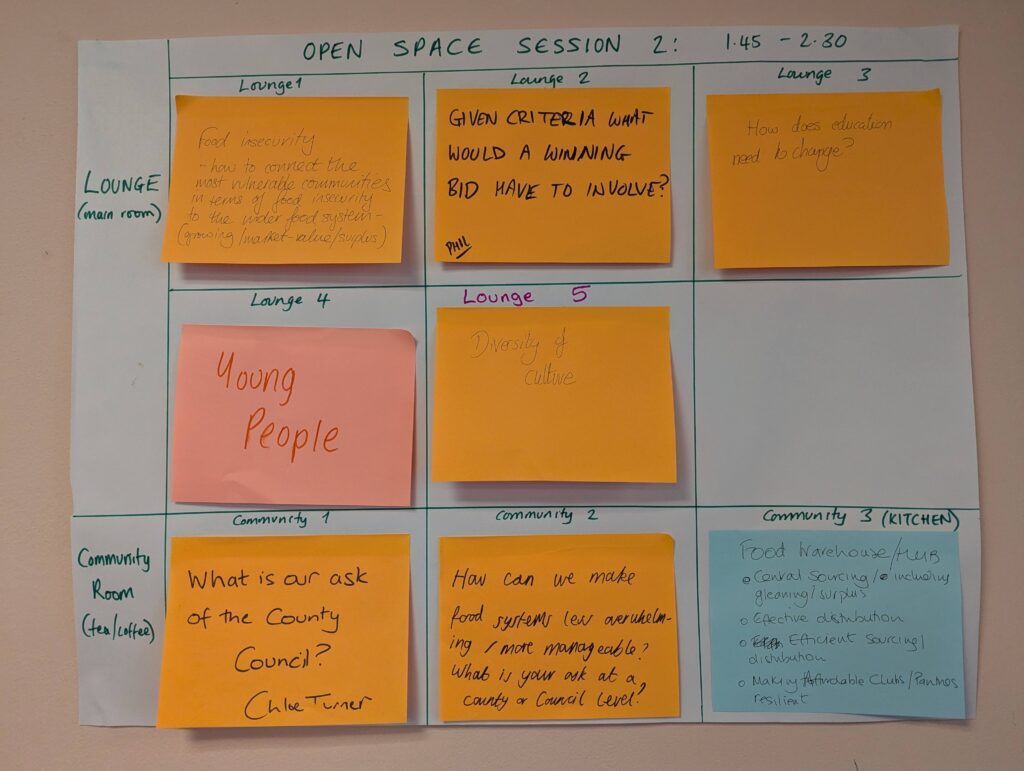 OPEN SPACE SESSION 2: 1.45 - 2.30
LOUNGE
(main room)
Lounge 1
Food insecurity
- how to connect the
most vulnerable communities
in terms of food insecurity
to the wider food system -
(growing/market-value/surplus)
Lounge 2
GIVEN CRITERIA WHAT
WOULD A WINNING
BID HAVE TO INVOLVE?
PHIL
Lounge 3
How does education
need to change?
Lounge 4
Young
People
Lounge 5
Diversity of
culture
Community
Room
(tea/coffee)
Community 1
What is our ask
of the County
Council?
Chloe Turner
Community 2
How can we make
food systems less overwhelm-
ing / more manageable?
What is your ask at a
county or Council Level?
Community 3 (KITCHEN)
Food Warehouse/Hub
Central Sourcing/ including
gleaning/surplus
Effective distribution
Efficient sourcing/
distribution
Making Affordable Clubs/Pantries
resilient